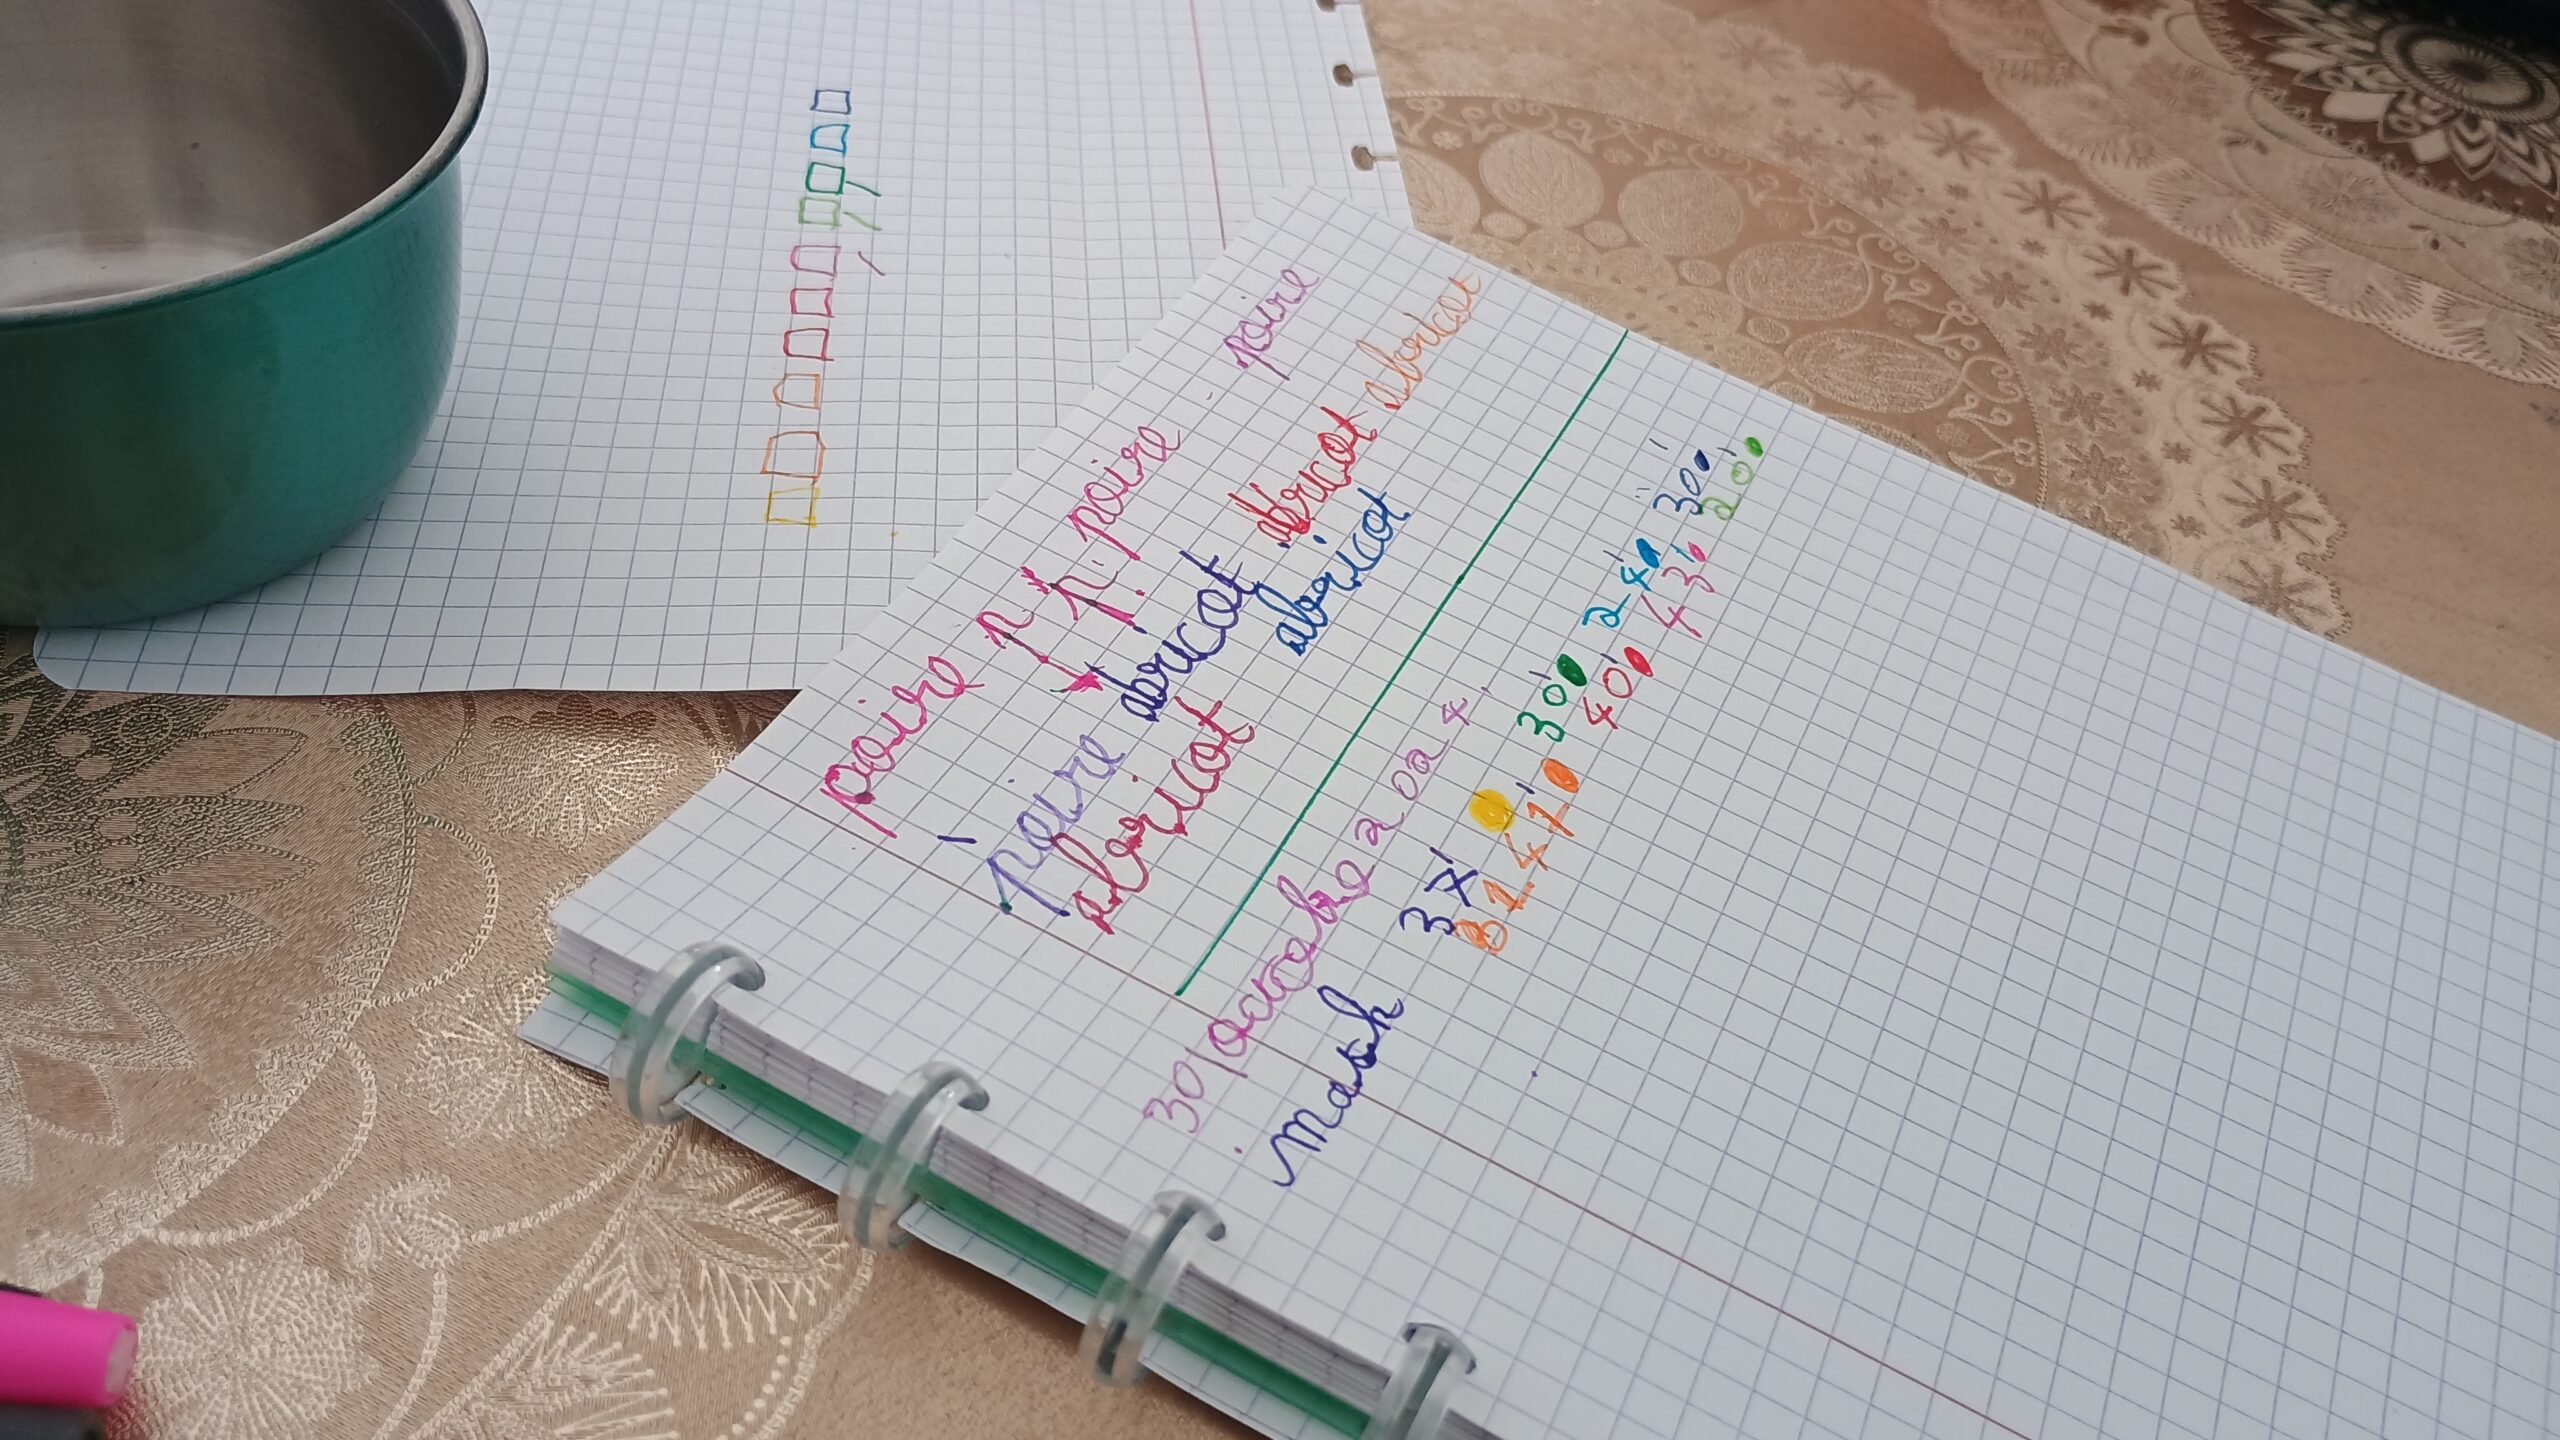 poire p p. p. poire poire
poire abricot abricot abricot
abricot abricot
30/octrabre 2024
matah 37 30 240 300
31.410 400 430 200